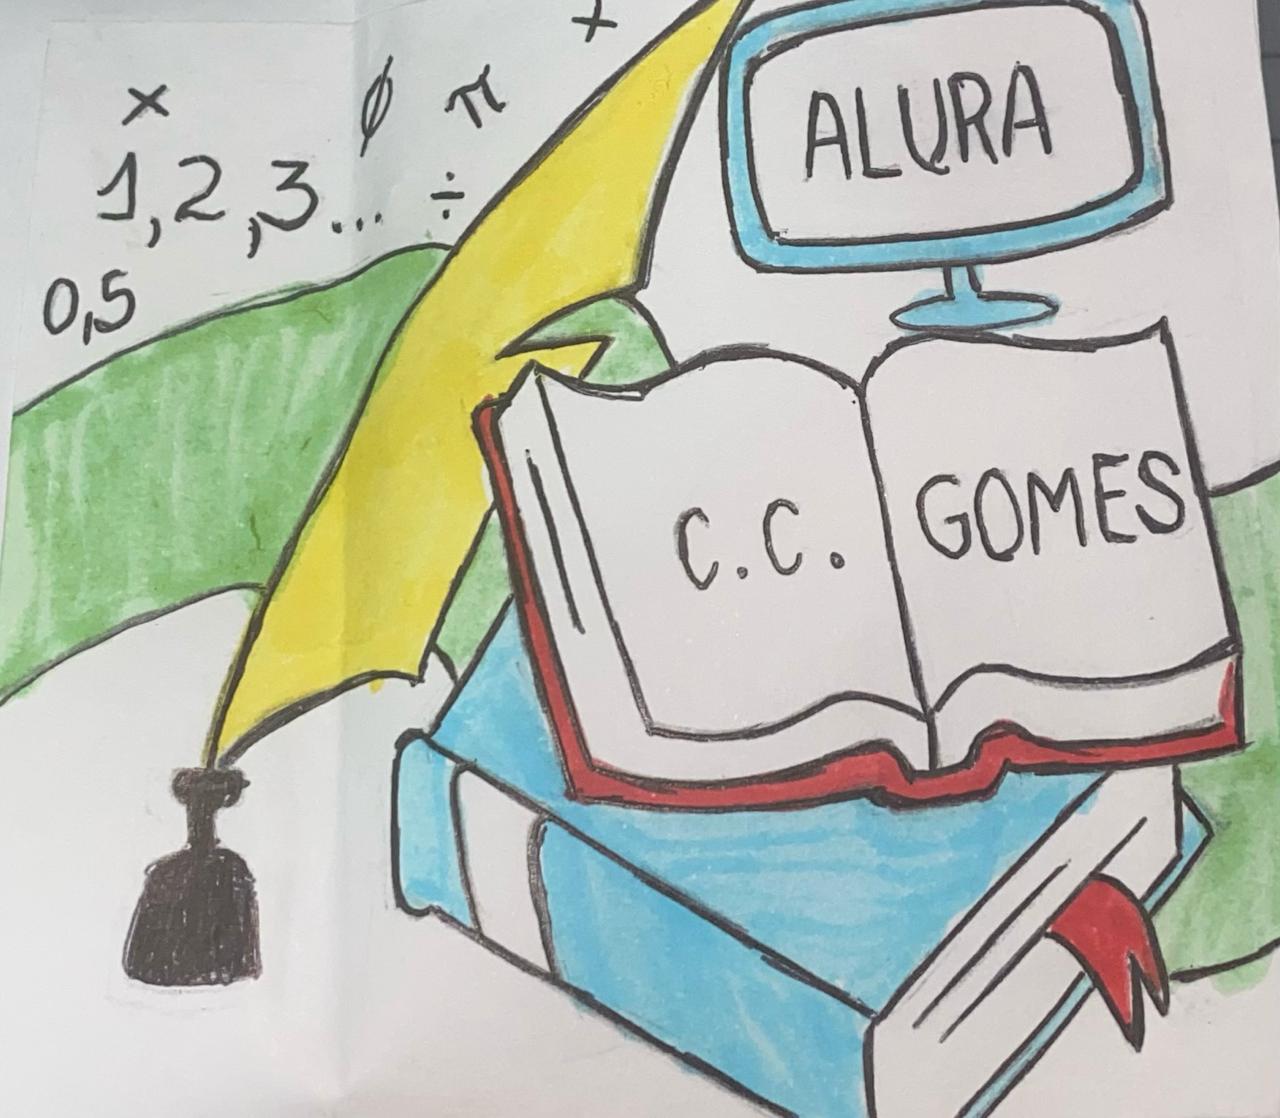 +
× ∅ π
1,2,3... ÷
0,5
ALURA
C.C. GOMES